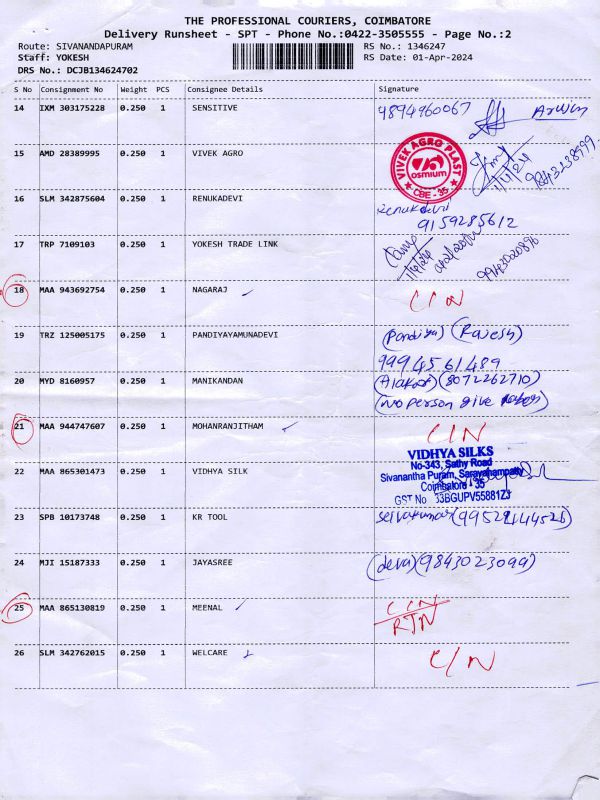 THE PROFESSIONAL COURIERS, COIMBATORE
Delivery Runsheet - SPT - Phone No.:0422-3505555 - Page No.:2
Route: SIVANANDAPURAM RS No.: 1346247
Staff: YOKESH RS Date: 01-Apr-2024
DRS No.: DCJB134624702
S No Consignment No Weight PCS Consignee Details Signature
14 IXM 303175228 0.250 1 SENSITIVE 9894960067
15 AMD 28389995 0.250 1 VIVEK AGRO
VIVEK AGRO PLAST
osmium
CBE - 35
16 SLM 342875604 0.250 1 RENUKADEVI Renukadevi
9159285612
17 TRP 7109103 0.250 1 YOKESH TRADE LINK
18 MAA 943692754 0.250 1 NAGARAJ C/N
19 TRZ 125005175 0.250 1 PANDIYAYAMUNADEVI (Pandiya) (Rajesh)
9994561489
20 MYD 8160957 0.250 1 MANIKANDAN (8072262710)
(No person give
21 MAA 944747607 0.250 1 MOHANRANJITHAM C/N
22 MAA 865301473 0.250 1 VIDHYA SILK
VIDHYA SILKS
No-343, Sathy Road
Sivanantha Puram, Saravanampatty
Coimbatore - 35
GST No 33BGUPV55881Z3
23 SPB 10173748 0.250 1 KR TOOL Selvakumar
24 MJI 15187333 0.250 1 JAYASREE (deva) (9843023099)
25 MAA 865130819 0.250 1 MEENAL C/N
RTN
26 SLM 342762015 0.250 1 WELCARE C/N